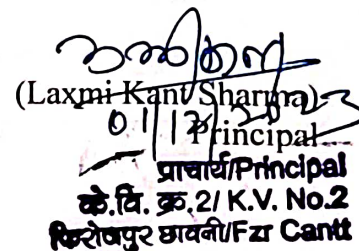 (Laxmi Kant Sharma)
Principal
प्राचार्य/Principal
के.वि. क्र.2/ K.V. No.2
फिरोजपुर छावनी/Fzr Cantt